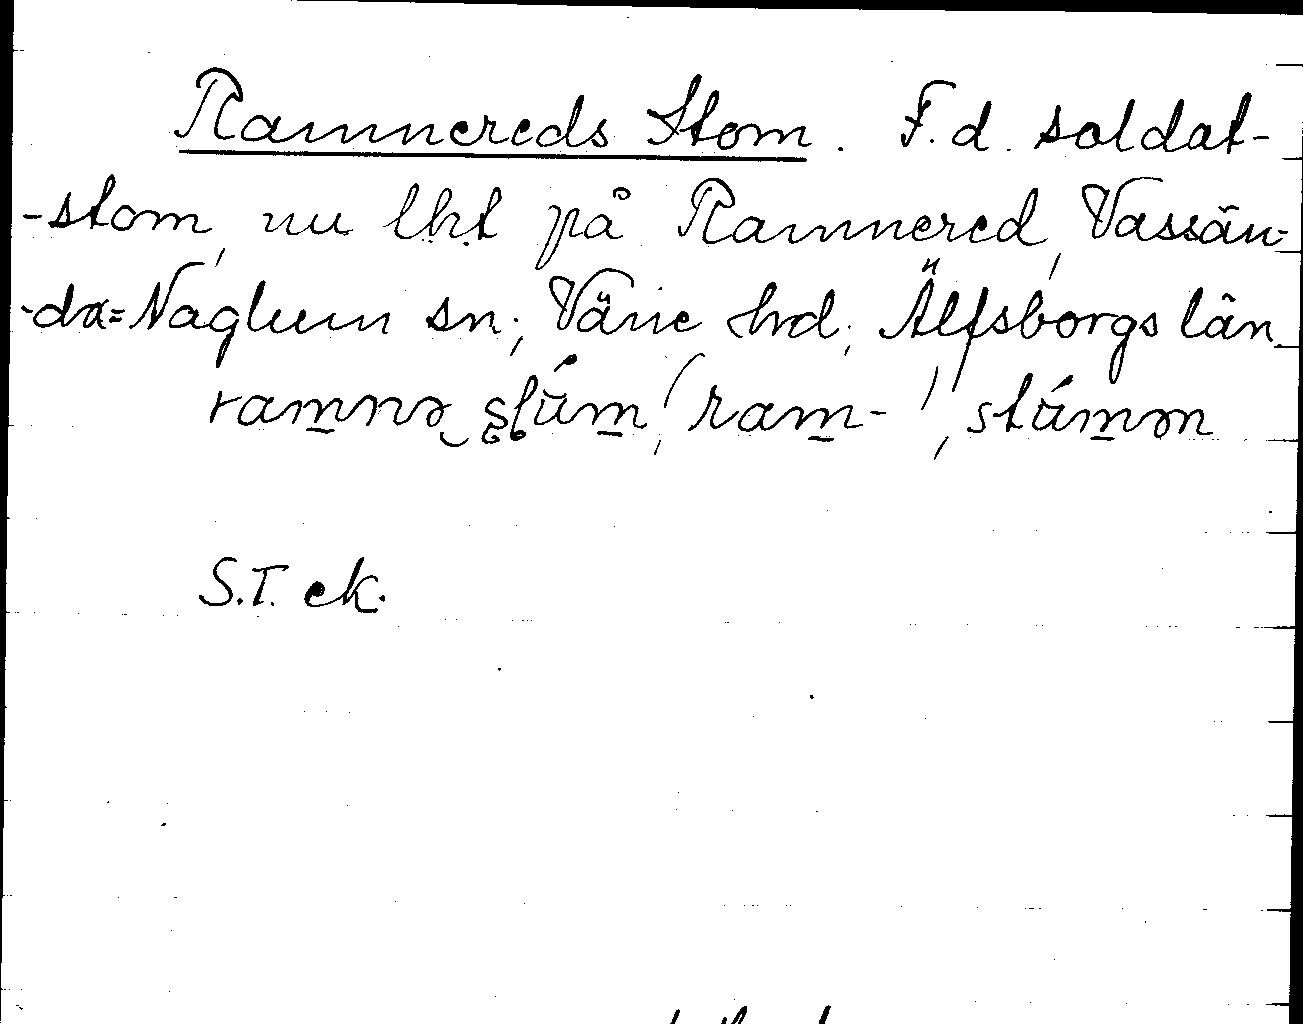 Ramnereds Stom. F.d. soldat-
-stom, nu lht på Ramnered, Vassän-
-da=Naglum sn; Väne hrd; Älfsborgs län.
ramnə ştúm, (ram- ), stúmən
S.T. ek.